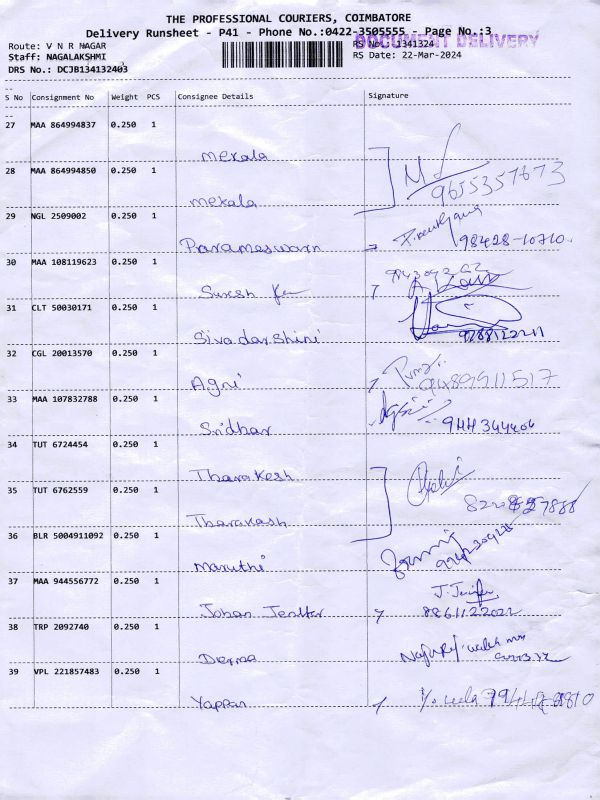 THE PROFESSIONAL COURIERS, COIMBATORE
Delivery Runsheet - P41 - Phone No.:0422-3505555 - Page No.:3
DOCUMENT DELIVERY
Route: V N R NAGAR RS No.: 1341324
Staff: NAGALAKSHMI RS Date: 22-Mar-2024
DRS No.: DCJB134132403
S No Consignment No Weight PCS Consignee Details Signature
27 MAA 864994837 0.250 1
Mekala
28 MAA 864994850 0.250 1
9655357673
Mekala
29 NGL 2509002 0.250 1
Parameswarn 98428-10710
30 MAA 108119623 0.250 1
Suresh
31 CLT 50030171 0.250 1
Sivadarshini 9788122211
32 CGL 20013570 0.250 1
Agni
33 MAA 107832788 0.250 1
Sridhar
34 TUT 6724454 0.250 1
Tharakesh
35 TUT 6762559 0.250 1
Tharakash
36 BLR 5004911092 0.250 1
Maruthi
37 MAA 944556772 0.250 1
J. Jenifer
Johan 8861122022
38 TRP 2092740 0.250 1
Derma
39 VPL 221857483 0.250 1
Yappan